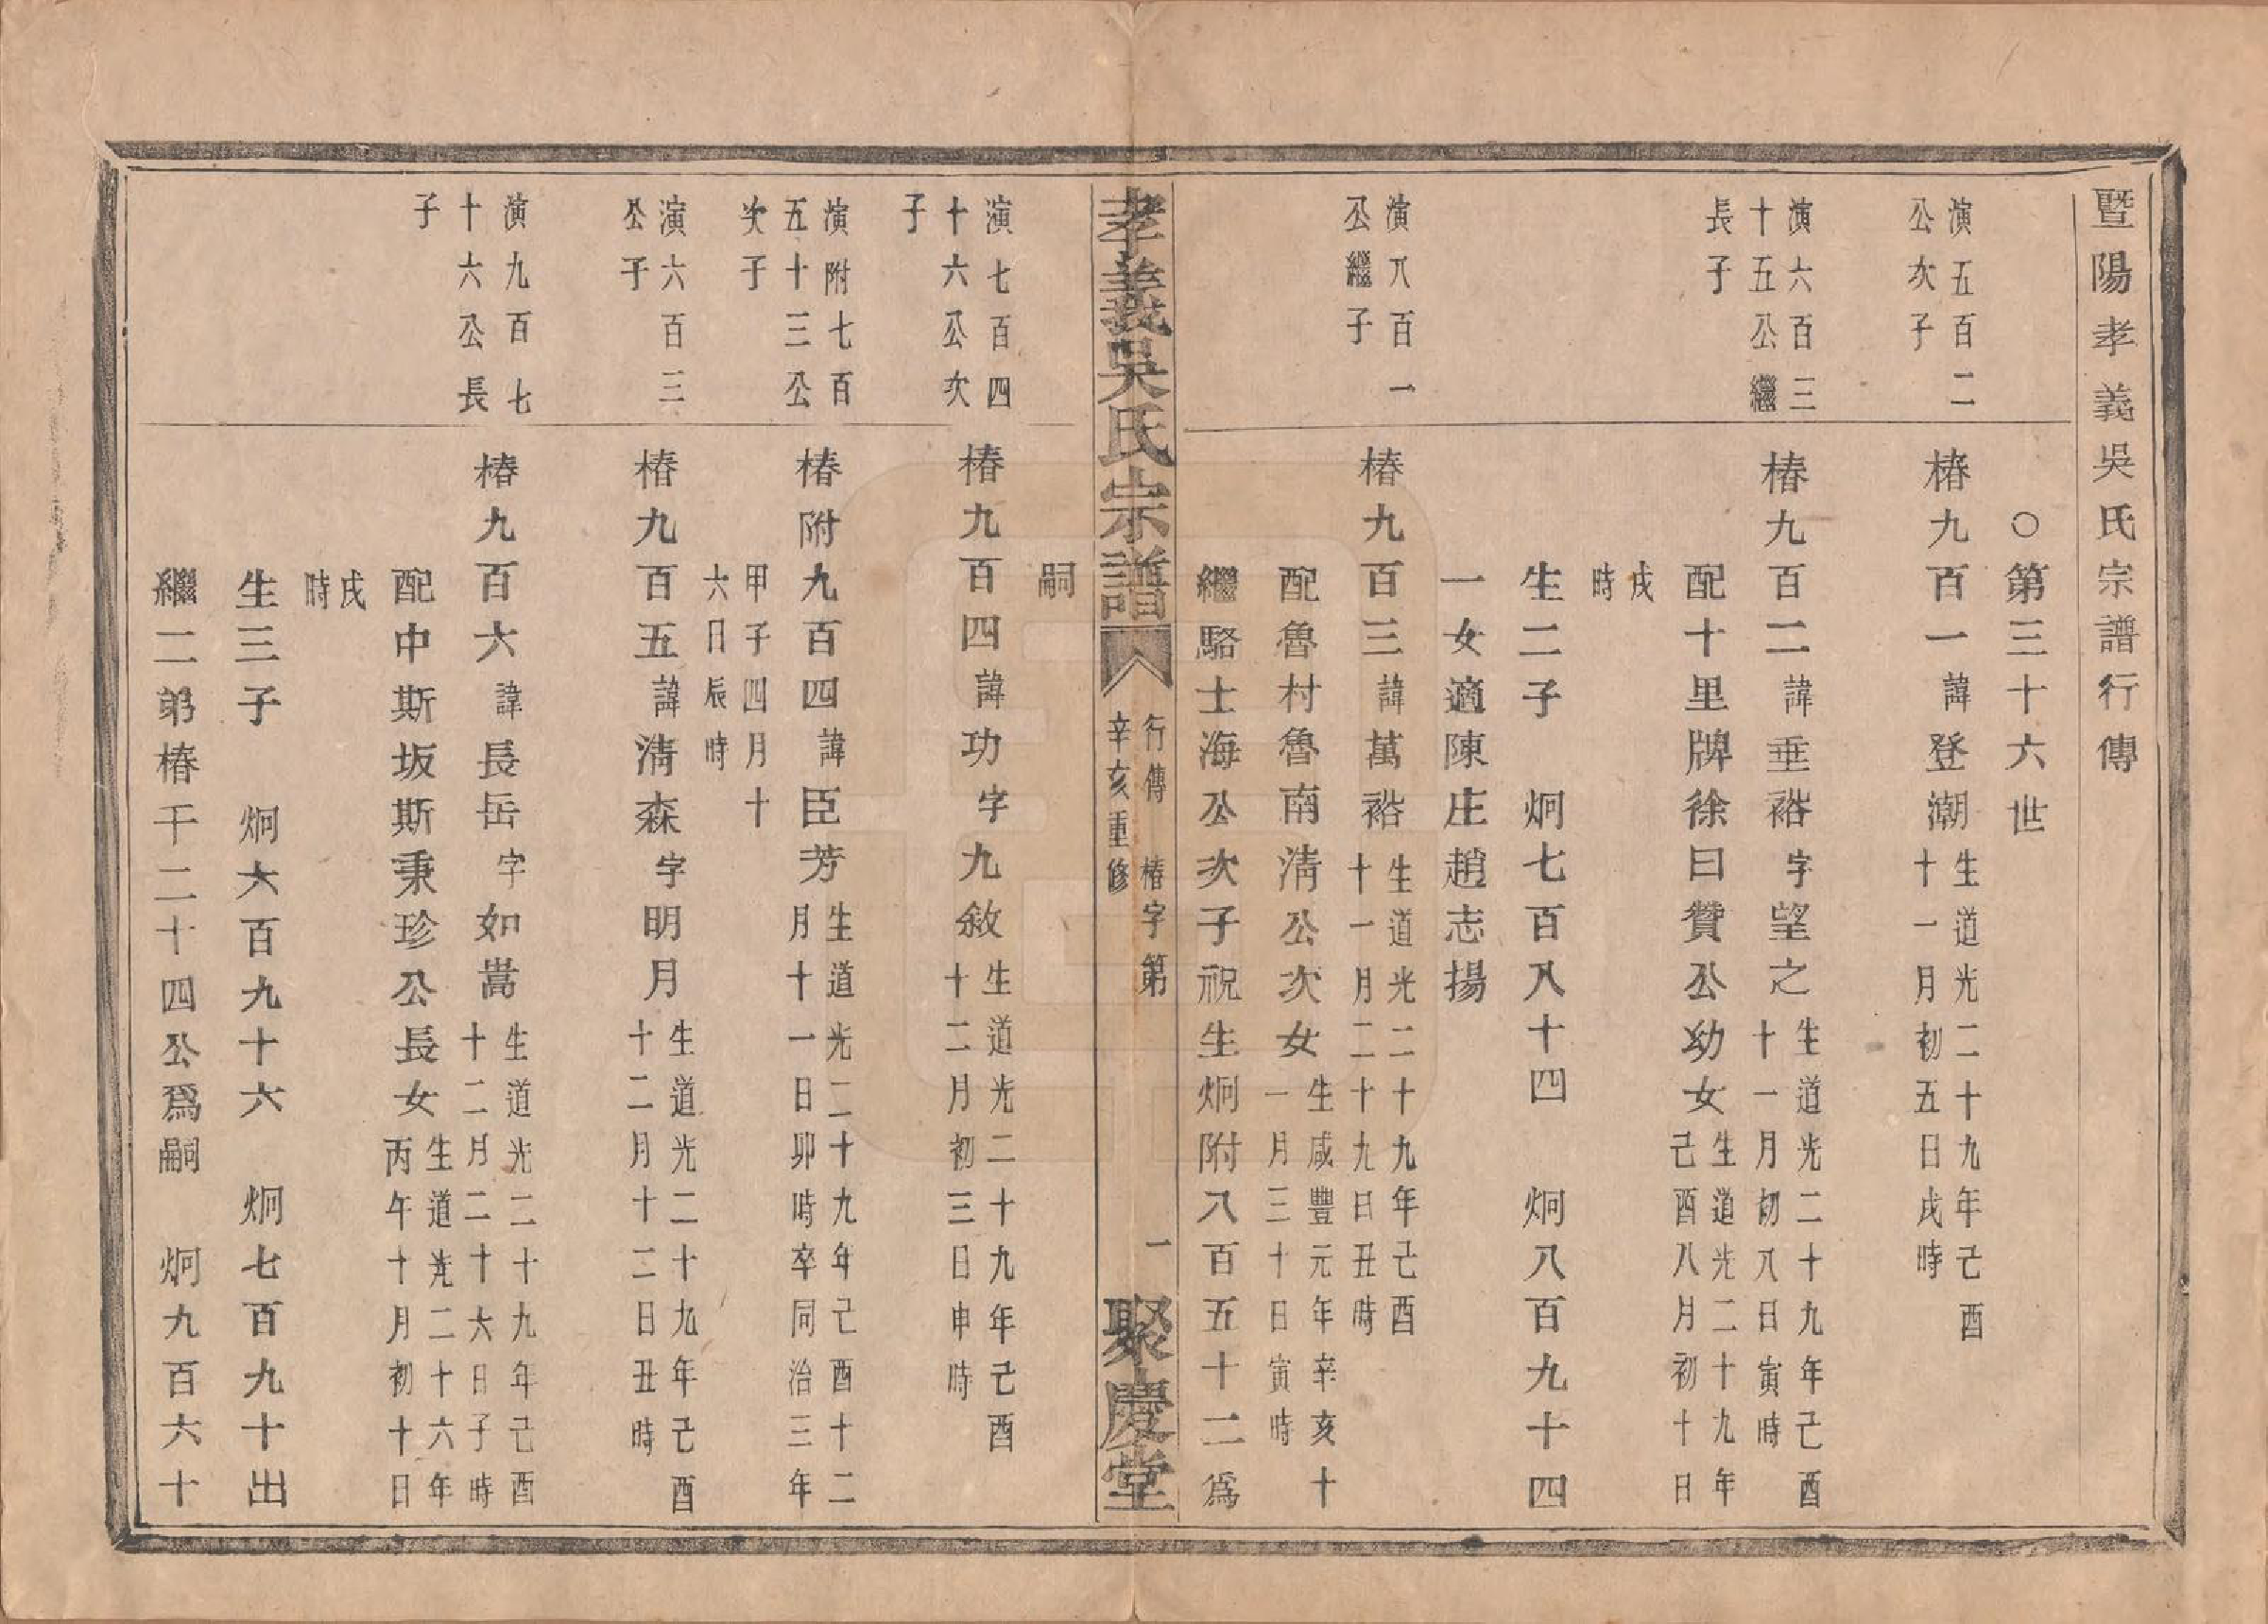 暨陽孝義吳氏宗譜行傳
○第三十六世
演五百二
公次子
椿九百一諱登潮
生道光二十九年己酉
十一月初五日戌時
演六百三
十五公繼
長子
椿九百二諱垂裕字望之
生道光二十九年己酉
十一月初八日寅時
配十里牌徐曰贊公幼女
生道光二十九年
己酉八月初十日
戌
時
生二子 炯七百八十四 炯八百九十四
一女適陳庄趙志揚
演八百一
公繼子
椿九百三諱萬裕
生道光二十九年己酉
十一月二十九日丑時
配魯村魯南淸公次女
生咸豐元年辛亥十
一月三十日寅時
繼駱士海公次子祝生炯附八百五十二爲
孝義吳氏宗譜
行傳 椿字第 一
辛亥重修
聚慶堂
嗣
演七百四
十六公次
子
椿九百四諱功字九敘
生道光二十九年己酉
十二月初三日申時
演附七百
五十三公
次子
椿附九百四諱臣芳
生道光二十九年己酉十二
月十一日卯時卒同治三年
甲子四月十
六日辰時
演六百三
公子
椿九百五諱淸森字明月
生道光二十九年己酉
十二月十二日丑時
演九百七
十六公長
子
椿九百六諱長岳字如嵩
生道光二十九年己酉
十二月二十六日子時
配中斯坂斯秉珍公長女
生道光二十六年
丙午十月初十日
戌
時
生三子 炯六百九十六 炯七百九十出
繼二弟椿千二十四公爲嗣 炯九百六十